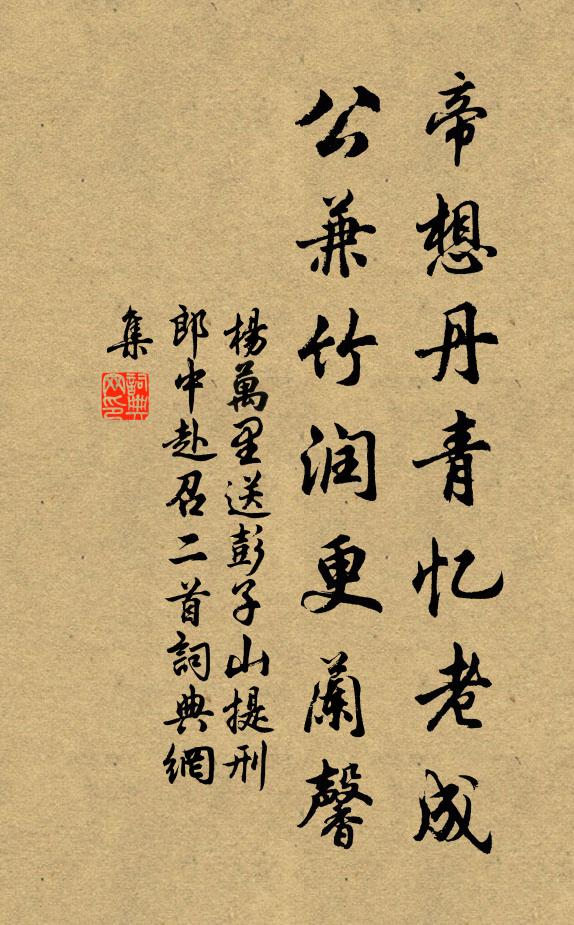 帝想丹青忆老成
公兼竹润更蘭馨
楊萬里送彭子山提刑
郎中赴召二首詞典網
集
詞典網印